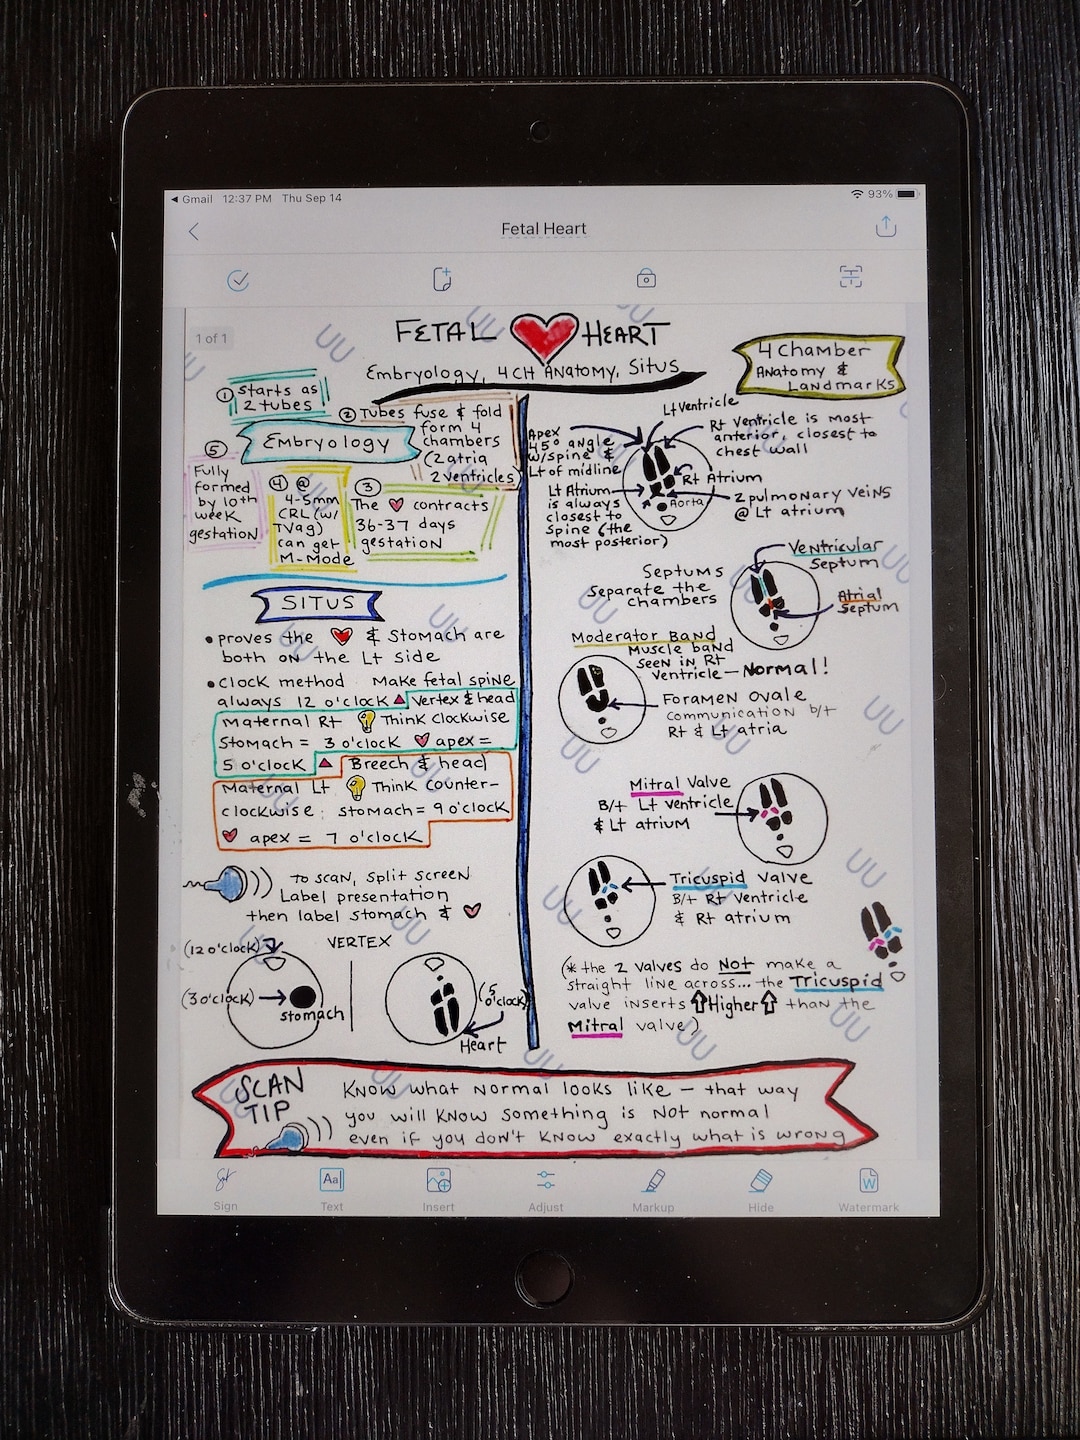 Gmail 12:37 PM Thu Sep 14
93%
Fetal Heart
1 of 1
FETAL HEART
Embryology, 4 CH ANATOMY, SITUS
① Starts as
2 tubes
② Tubes fuse & fold
form 4
chambers
(2 atria
2 ventricles)
EMBRYOLOGY
⑤
Fully
formed
by 10th
week
gestation
④ @
4-5mm
CRL (w/
TVag)
can get
M-Mode
③
The ♥ contracts
36-37 days
gestation
SITUS
• proves the ♥ & Stomach are
both on the Lt side
• Clock method Make fetal spine
always 12 o'clock ▲ Vertex & head
Maternal Rt Think clockwise
Stomach = 3 o'clock ♥ apex =
5 o'clock ▲ Breech & head
Maternal Lt Think counter-
clockwise: stomach = 9 o'clock
♥ apex = 7 o'clock
To scan, split screen
Label presentation
then label stomach & ♥
VERTEX
(12 o'clock)
(3 o'clock)
Stomach
(5
o'clock)
Heart
4 Chamber
Anatomy &
Landmarks
Lt Ventricle
Apex
45° angle
w/spine &
Lt of midline
Rt Ventricle is most
anterior, closest to
chest wall
Rt Atrium
Lt Atrium
is always
closest to
spine (the
most posterior)
Aorta
2 pulmonary veins
@ Lt atrium
Septums
Separate the
chambers
Ventricular
Septum
Atrial
Septum
Moderator Band
Muscle band
seen in Rt
Ventricle — Normal!
Foramen Ovale
communication b/t
Rt & Lt atria
Mitral Valve
B/t Lt ventricle
& Lt atrium
Tricuspid Valve
B/t Rt Ventricle
& Rt atrium
(* the 2 valves do NOT make a
straight line across... the Tricuspid
valve inserts ⇧Higher⇧ than the
Mitral valve)
SCAN
TIP
Know what normal looks like — that way
you will know something is not normal
even if you don't know exactly what is wrong
UU
Sign Text Insert Adjust Markup Hide Watermark